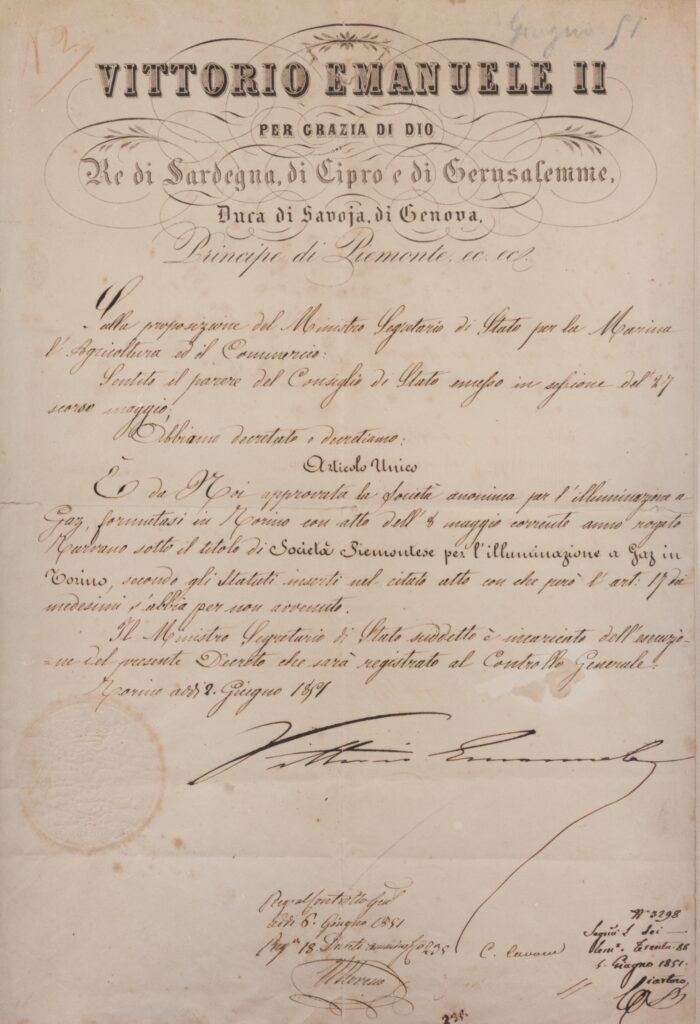 N 2
Giugno 51
VITTORIO EMANUELE II
PER GRAZIA DI DIO
Re di Sardegna, di Cipro e di Gerusalemme,
Duca di Savoja, di Genova,
Principe di Piemonte, ec. ec.
Sulla proposizione del Ministro Segretario di Stato per la Marina
l'Agricoltura ed il Commercio:
Sentito il parere del Consiglio di Stato emesso in sessione del 27
scorso maggio;
Abbiamo decretato e decretiamo:
Articolo Unico
È da Noi approvata la Società anonima per l'illuminazione a
Gaz, formatasi in Torino con atto dell' 8 maggio corrente anno rogato
sotto il titolo di Società Piemontese per l'illuminazione a Gaz in
Torino, secondo gli Statuti inserti nel citato atto con che però l'art: 17 dei
medesimi s'abbia per non avvenuto.
Il Ministro Segretario di Stato suddetto è incaricato dell'esecuzio-
=ne del presente Decreto che sarà registrato al Controllo Generale.
Torino addì 2. Giugno 1851
Vittorio Emanuele
Reg. al Controllo Gen.
addì 6. Giugno 1851
Reg. 18 235
C. Cavour
Moreno
N° 3298
Sei
88
5. Giugno 1851.
235.